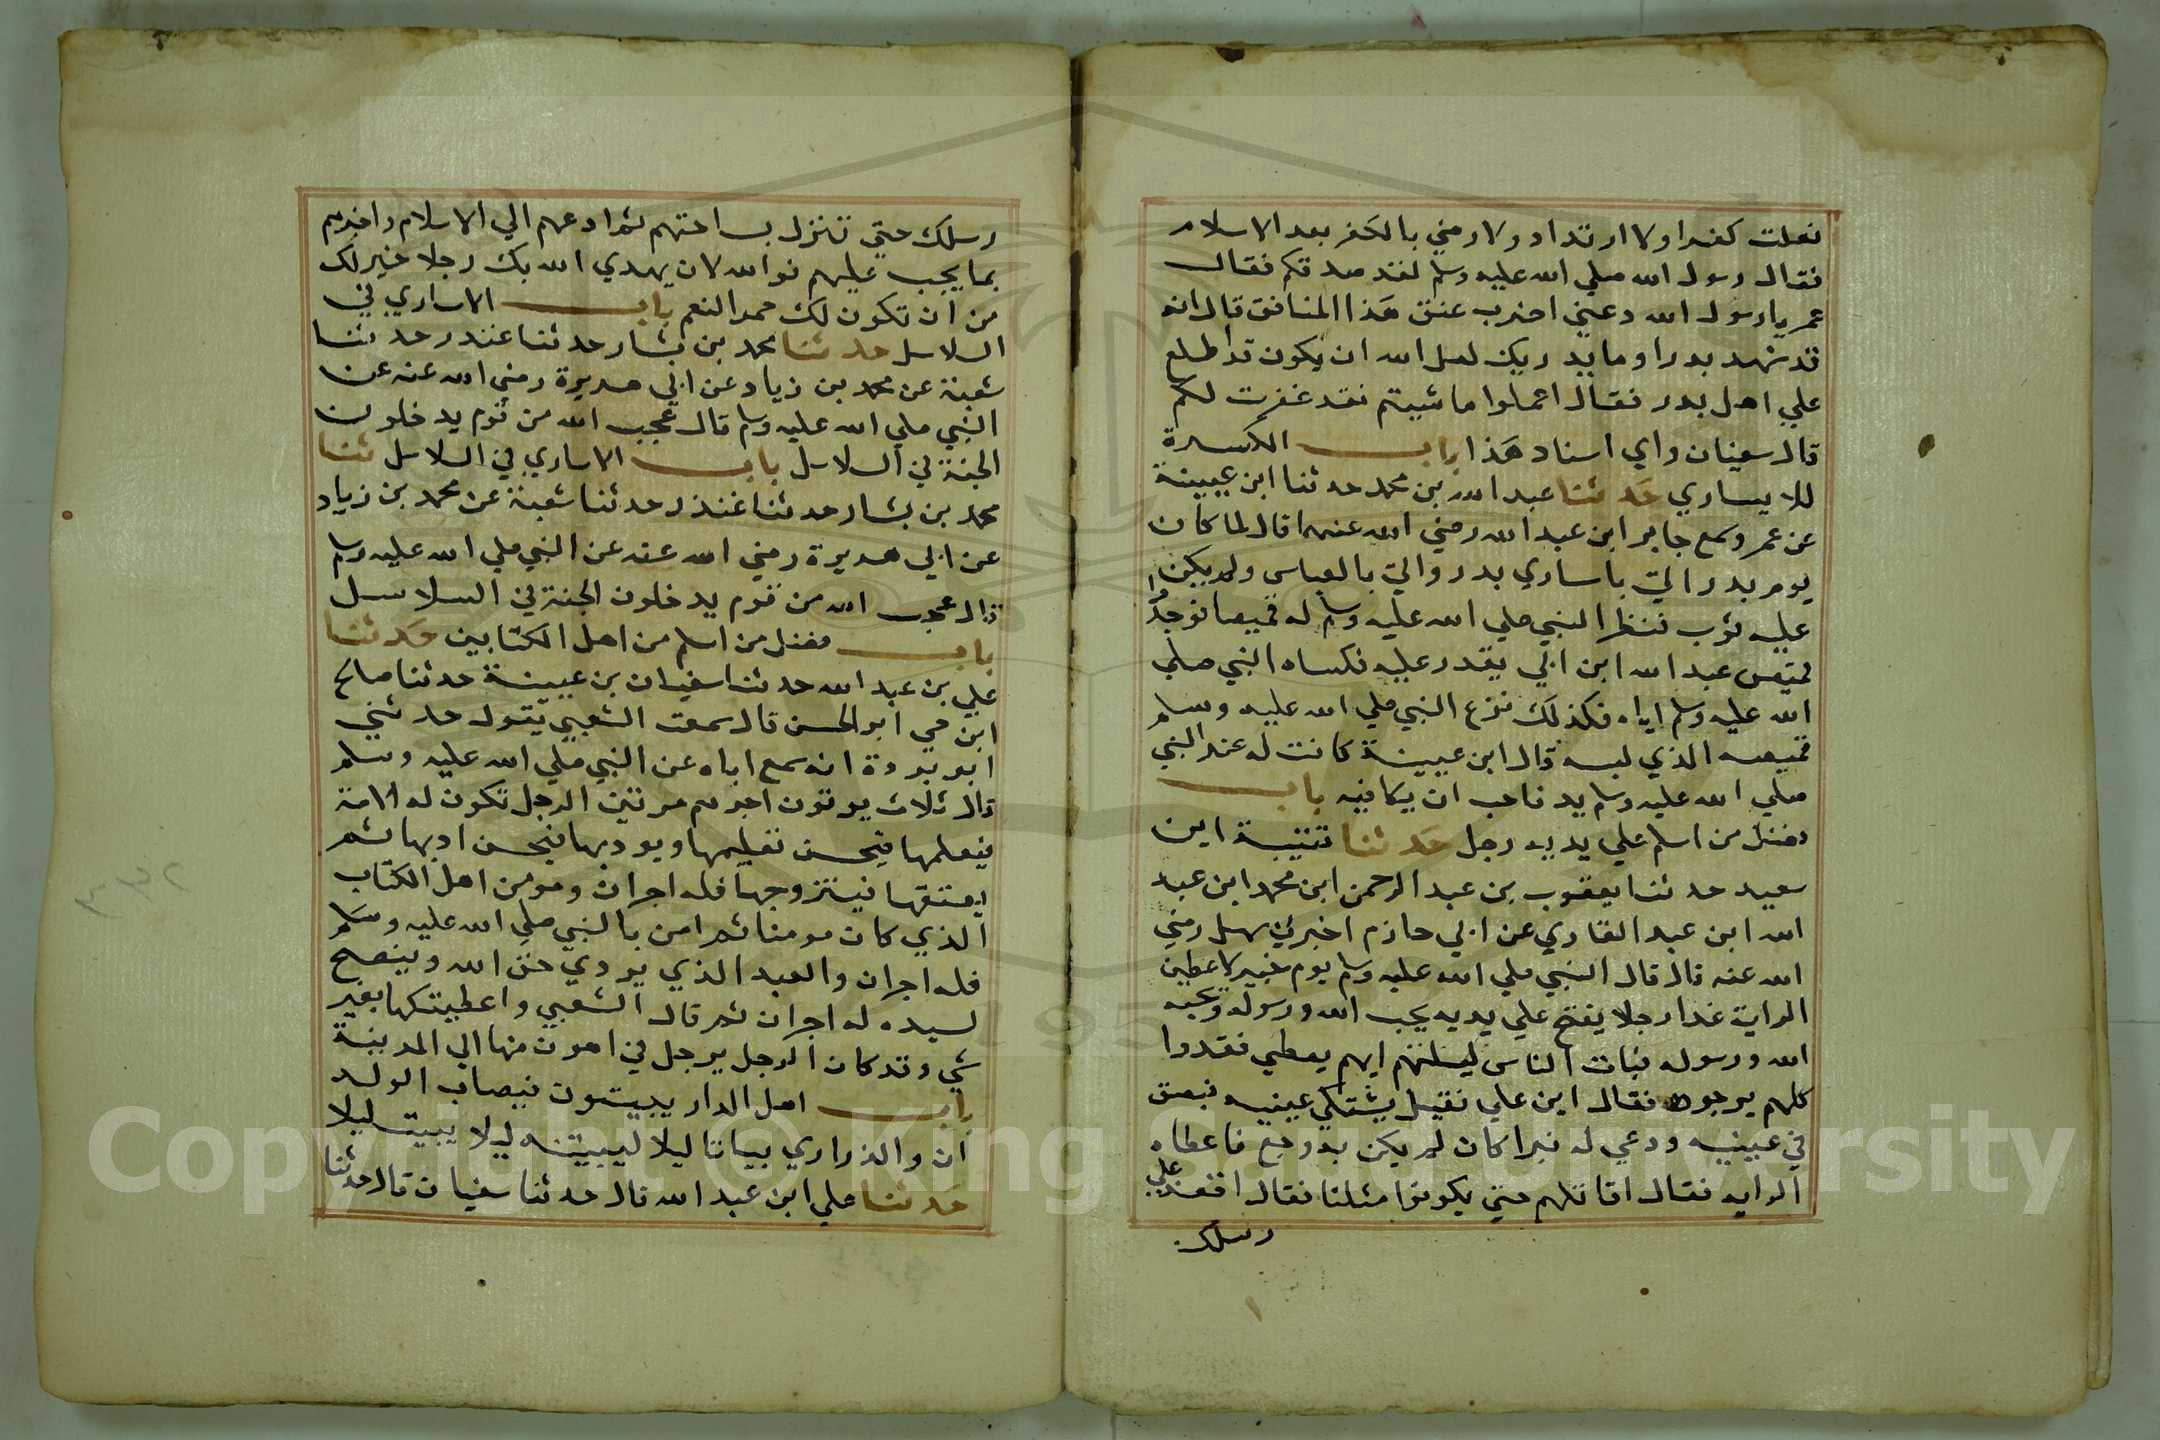 فعلت كفرا ولا ارتدادا ولا رضي بالكفر بعد الاسلام
فقال رسول الله صلي الله عليه وسلم لقد صدقكم فقال
عمر يا رسول الله دعني اضرب عنق هذا المنافق قال انه
قد شهد بدرا وما يدريك لعل الله ان يكون قد اطلع
علي اهل بدر فقال اعملوا ما شيتم فقد غفرت لكم
قال سفينان واي اسناد هذا باب الكسرة
للا يساري حدثنا عبد الله بن محمد حدثنا ابن عيينة
عن عمر وسمع جابر ابن عبد الله رضي الله عنهما قال لما كان
يوم بدر اتي باساري بدر واتي بالعباس ولم يكن
عليه ثوب فنظر النبي صلي الله عليه وسلم له قميصا فوجدوا
قميص عبد الله ابن ابي يقدر عليه فكساه النبي صلي
الله عليه وسلم اياه فكذلك نزع النبي صلي الله عليه وسلم
قميصه الذي لبسه قال ابن عيينة كانت له عند النبي
صلي الله عليه وسلم يد فاحب ان يكافيه باب
فضل من اسلم علي يديه رجل حدثنا قتيبة ابن
سعيد حدثنا يعقوب بن عبد الرحمن ابن محمد ابن عبد
الله ابن عبد القاري عن ابي حازم اخبرني سهل رضي
الله عنه قال قال النبي صلي الله عليه وسلم يوم خيبر لاعطين
الراية غدا رجلا يفتح علي يديه يحب الله ورسوله ويحبه
الله ورسوله فبات الناس ليلتهم ايهم يعطي فغدوا
كلهم يرجوه فقال اين علي فقيل يشتكي عينيه فبصق
في عينيه ودعي له فبرا كان لم يكن به وجع فاعطاه
الرايه فقال اقاتلهم حتي يكونوا مثلنا فقال انفذ علي
رسلك
رسلك حتي تنزل بساحتهم ثم ادعهم الي الاسلام واخبرهم
بما يجب عليهم فوالله لان يهدي الله بك رجلا خير لك
من ان تكون لك حمر النعم باب الاساري في
السلاسل حدثنا محمد بن بشار حدثنا غندر حدثنا
شعبة عن محمد بن زياد عن ابي هريرة رضي الله عنه عن
النبي صلي الله عليه وسلم قال عجب الله من قوم يدخلون
الجنة في السلاسل باب الاساري في السلاسل ثنا
محمد بن بشار حدثنا غندر حدثنا شعبة عن محمد بن زياد
عن ابي هريرة رضي الله عنه عن النبي صلي الله عليه وسلم
قال عجب الله من قوم يدخلون الجنة في السلاسل
باب فضل من اسلم من اهل الكتابين حدثنا
علي بن عبد الله حدثنا سفيان بن عيينة حدثنا صالح
ابن حي ابو الحسن قال سمعت الشعبي يقول حدثني
ابو بردة انه سمع اباه عن النبي صلي الله عليه وسلم
قال ثلاث يوتون اجرهم مرتين الرجل تكون له الامة
فيعلمها فيحسن تعليمها ويودبها فيحسن ادبها ثم
يعتقها فيتزوجها فله اجران ومومن اهل الكتاب
الذي كان مومنا ثم امن بالنبي صلي الله عليه وسلم
فله اجران والعبد الذي يودي حق الله وينصح
لسيده له اجران ثم قال الشعبي واعطيتكها بغير
شي وقد كان الرجل يرحل في اهون منها الي المدينة
باب اهل الدار يبيتون فيصاب الولد
ان والذراري بياتا ليلا ليبيتنه ليلا يبيت ليلا
حدثنا علي ابن عبد الله قال حدثنا سفيان قال حدثنا
Copyright © King Saud University